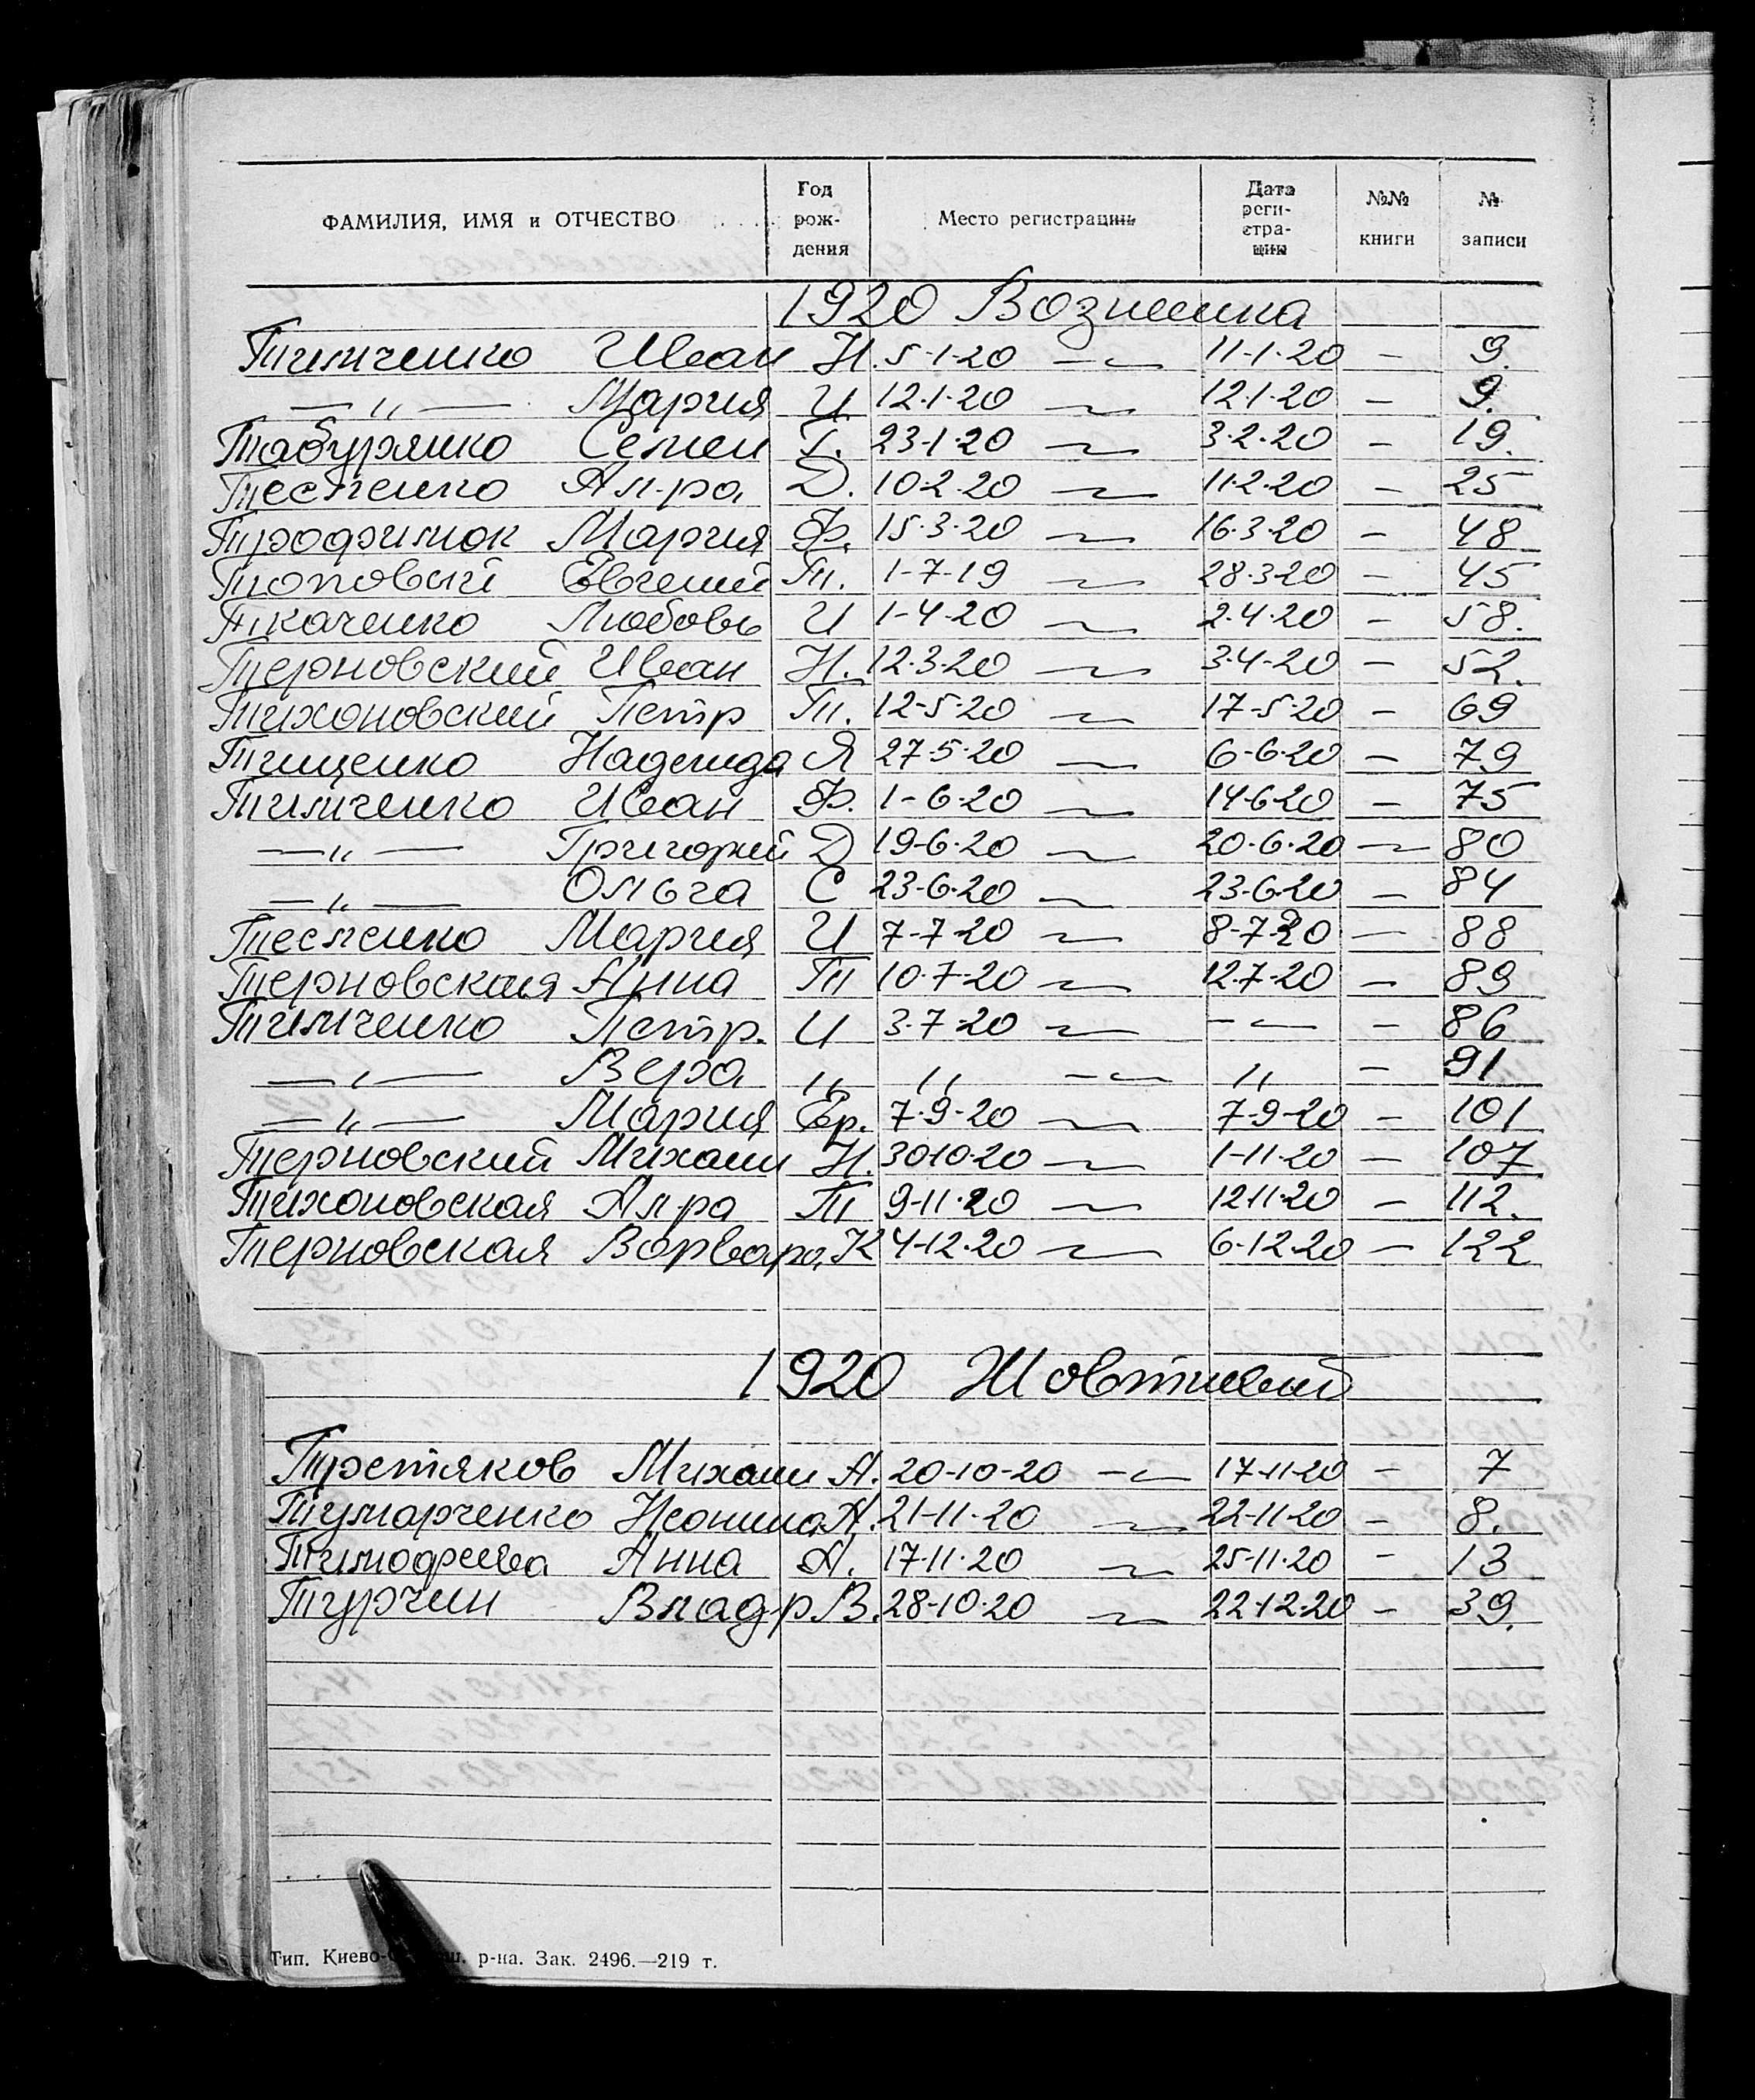 ФАМИЛИЯ, ИМЯ и ОТЧЕСТВО Год рождения Место регистрации Дата регистрации №№ книги № записи
1920
Тимченко Иван Н. 5-1-20 –~ 11-1-20 – 9.
— „ — Мария И. 12.1.20 ~ 12.1.20 – 9.
Табурянко Семен Г. 23-1-20 ~ 3.2.20 – 19.
Тесленко Ал-ра Д. 10.2.20 ~ 11.2.20 – 25
Трофимюк Мария Ф. 15.3.20 ~ 16.3.20 – 48
Топовский Евгений Т. 1-7-19 ~ 28.3.20 – 45
Ткаченко Любовь И 1-4-20 ~ 2.4.20 – 58.
Терновский Иван Н. 12.3.20 ~ 3.4.20 – 52.
Тихоновский Петр Т. 12-5-20 ~ 17-5-20 – 69
Тищенко Надежда Я 27.5.20 ~ 6-6-20 – 79
Тимченко Иван Ф. 1-6-20 ~ 14-6-20 – 75
— „ — Григорий Д 19-6-20 ~ 20-6-20 – 80
— „ — Ольга С 23-6-20 ~ 23-6-20 – 84
Тесленко Мария И 7-7-20 ~ 8-7-20 – 88
Терновская Анна Т 10-7-20 ~ 12.7-20 – 89
Тимченко Петр. И 3-7-20 ~ –~ – 86
— „ — Вера „ „ –~ „ – 91
— „ — Мария Ер. 7-9-20 ~ 7-9-20 – 101
Терновский Михаил Н. 30-10-20 ~ 1-11-20 – 107
Тихоновская Ал-ра Т 9-11-20 ~ 12-11-20 – 112.
Терновская Варвара К 4-12-20 ~ 6-12-20 – 122
1920
Третяков Михаил А. 20-10-20 –~ 17-11-20 – 7
Тумарченко Неонила А. 21-11-20 ~ 22-11-20 – 8.
Тимофеева Анна А. 17-11-20 ~ 25-11-20 – 13
Турчин Влад-р В. 28-10-20 ~ 22-12-20 – 39.
Тип. Киево- р-на. Зак. 2496.—219 т.